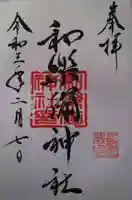 奉拝
和樂備神社
令和三年二月七日